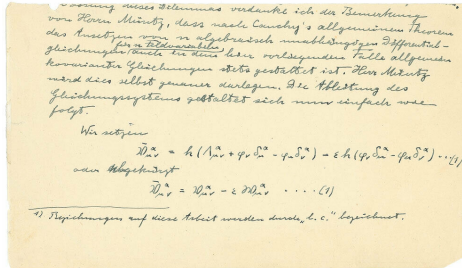 dieses Dilemmas verdanke ich der Bemerkung
von Herrn Müntz, dass nach Cauchy's allgemeinem Theorem
das Ansetzen von n algebraisch unabhängigen Differential-
für n Feldvariabeln
gleichungen auch in dem hier vorliegenden Falle allgemein
kovarianter Gleichungen stets gestattet ist. Herr Müntz
wird dies selbst genauer darlegen. Die Ableitung des
Gleichungssystems gestaltet sich nun einfach wie
folgt.
Wir setzen
= h(Λ^α_μν + φ_ν δ^α_μ − φ_μ δ^α_ν) − ε h(φ_ν δ^α_μ − φ_μ δ^α_ν) ···(1)
oder abgekürzt
− ε ····(1)
1) Beziehungen auf diese Arbeit werden durch „l. c." bezeichnet.